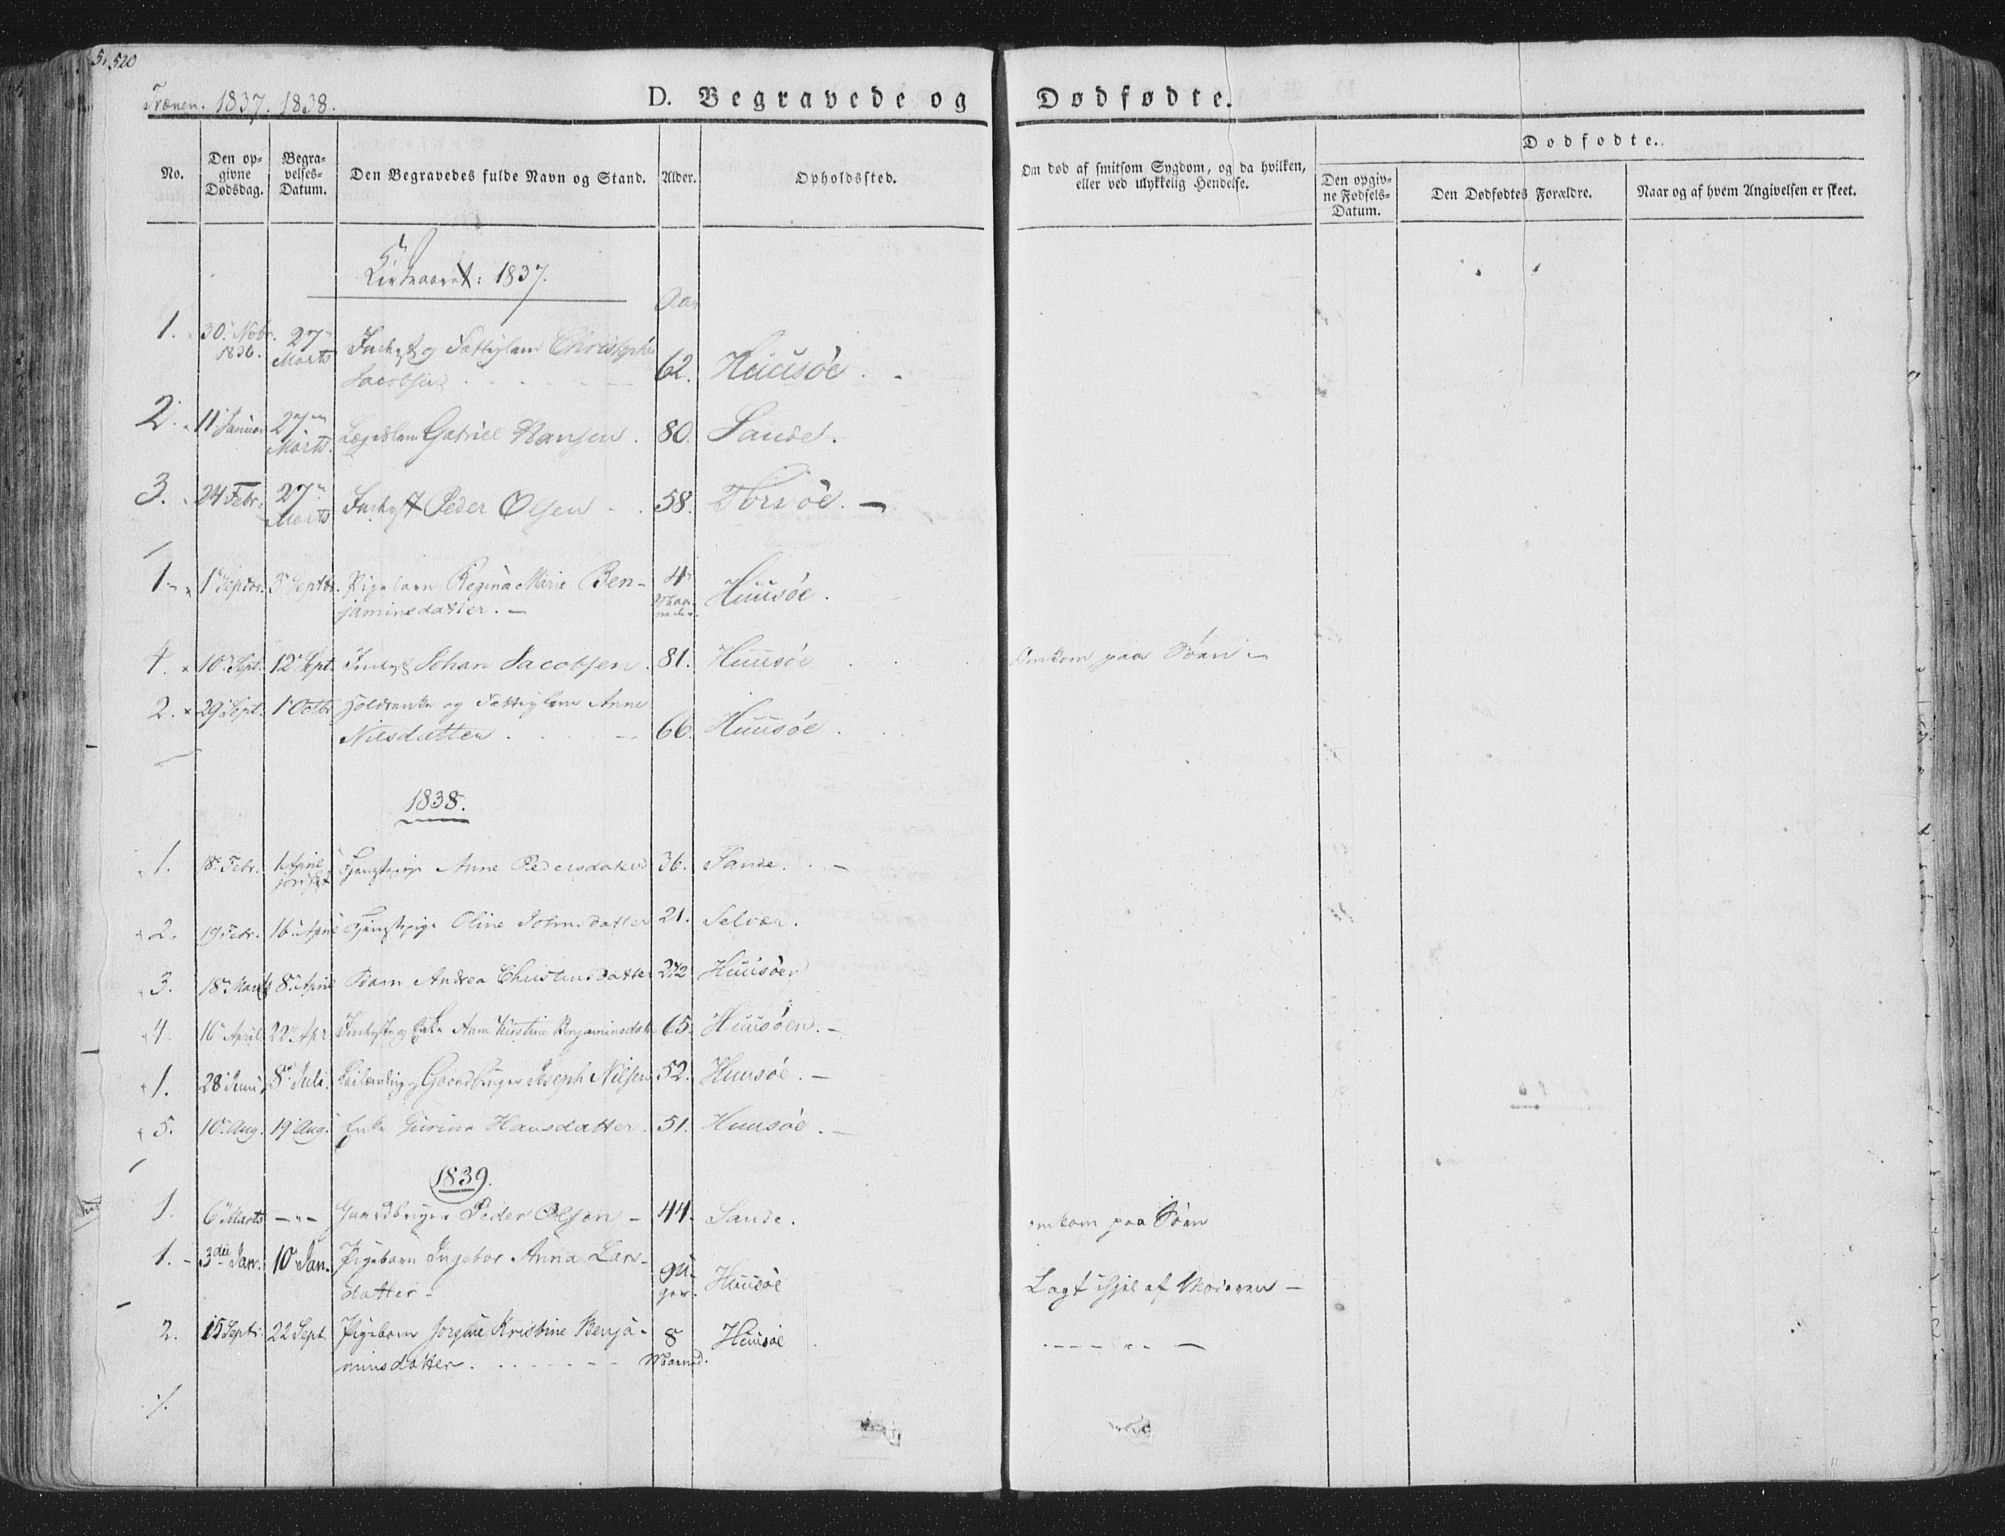 520
Trænen. 1837. 1838.
D. Begravede og Dødfødte.
No.
Den opgivne Dødsdag.
Begravelses-Datum.
Den Begravedes fulde Navn og Stand.
Alder.
Opholdssted.
Om død af smitsom Sygdom, og da hvilken, eller ved ulykkelig Hendelse.
Dødfødte.
Den opgivne Fødsels-Datum.
Den Dødfødtes Forældre.
Naar og af hvem Angivelsen er skeet.
Kirkeaaret: 1837.
Aar
1. 30 Novbr. 1836. 27 Marts Indhgst og Fattiglem
Jacobsen 62. Huusøe.
2. 11 Januar 27 Marts Lægdslem Gabriel Hansen. 80. Sande.
3. 24 Febr. 27 Marts Indhgst Peder Olsen 58. Torvøe. —
1. 1 Septbr. 3 Septbr. Pigebarn Regina Marie Ben-
jaminsdatter. — 4 Maaneder Huusøe.
4. 10 Sept. 12 Sept. Indhgst Johan Jacobsen. 81. Huusøe Omkom paa Søen —
2. 29 Sept. 1 Octbr og Fattiglem Anne
Nilsdatter 66. Huusøe.
1838.
1. 18 Febr. 1 April Anne Pedersdatter 36. Sande. —
2. 19 Febr. 16 April Tjenstepige Oline Johnsdatter 21. Selvær.
3. 18 Marts 8 April Barn Andrea Christensdatter 2½ Huusøen
4. 16 April 22 Apr Enke Anne Kirstine Benjaminsdatt 65. Huusøen. —
1. 28 Juni 8 Juli. Gaardbruger Joseph Nilsen 52. Huusøe. —
5. 10 Aug. 19 Aug. Enke Gurine Hansdatter. 51. Huusøe. —
1839.
1. 6 Marts — " — Gaardbruger Peder Olsen — 44. Sande. omkom paa Søen
1. 3die Jan. 10 Jan. Pigebarn Ingebor Anna Lars-
datter — Huusøe Lagt ihjel af Moderen —
2. 15 Sept. 22 Sept. Pigebarn Jørgine Kristine Benja-
minsdatter. 8 Maaned. Huusøe